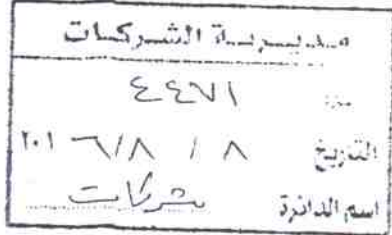 مديرية الشركات
عدد ٤٤٧١
التاريخ ٨ / ٨ / ٢٠١٦
اسم الدائرة شركات